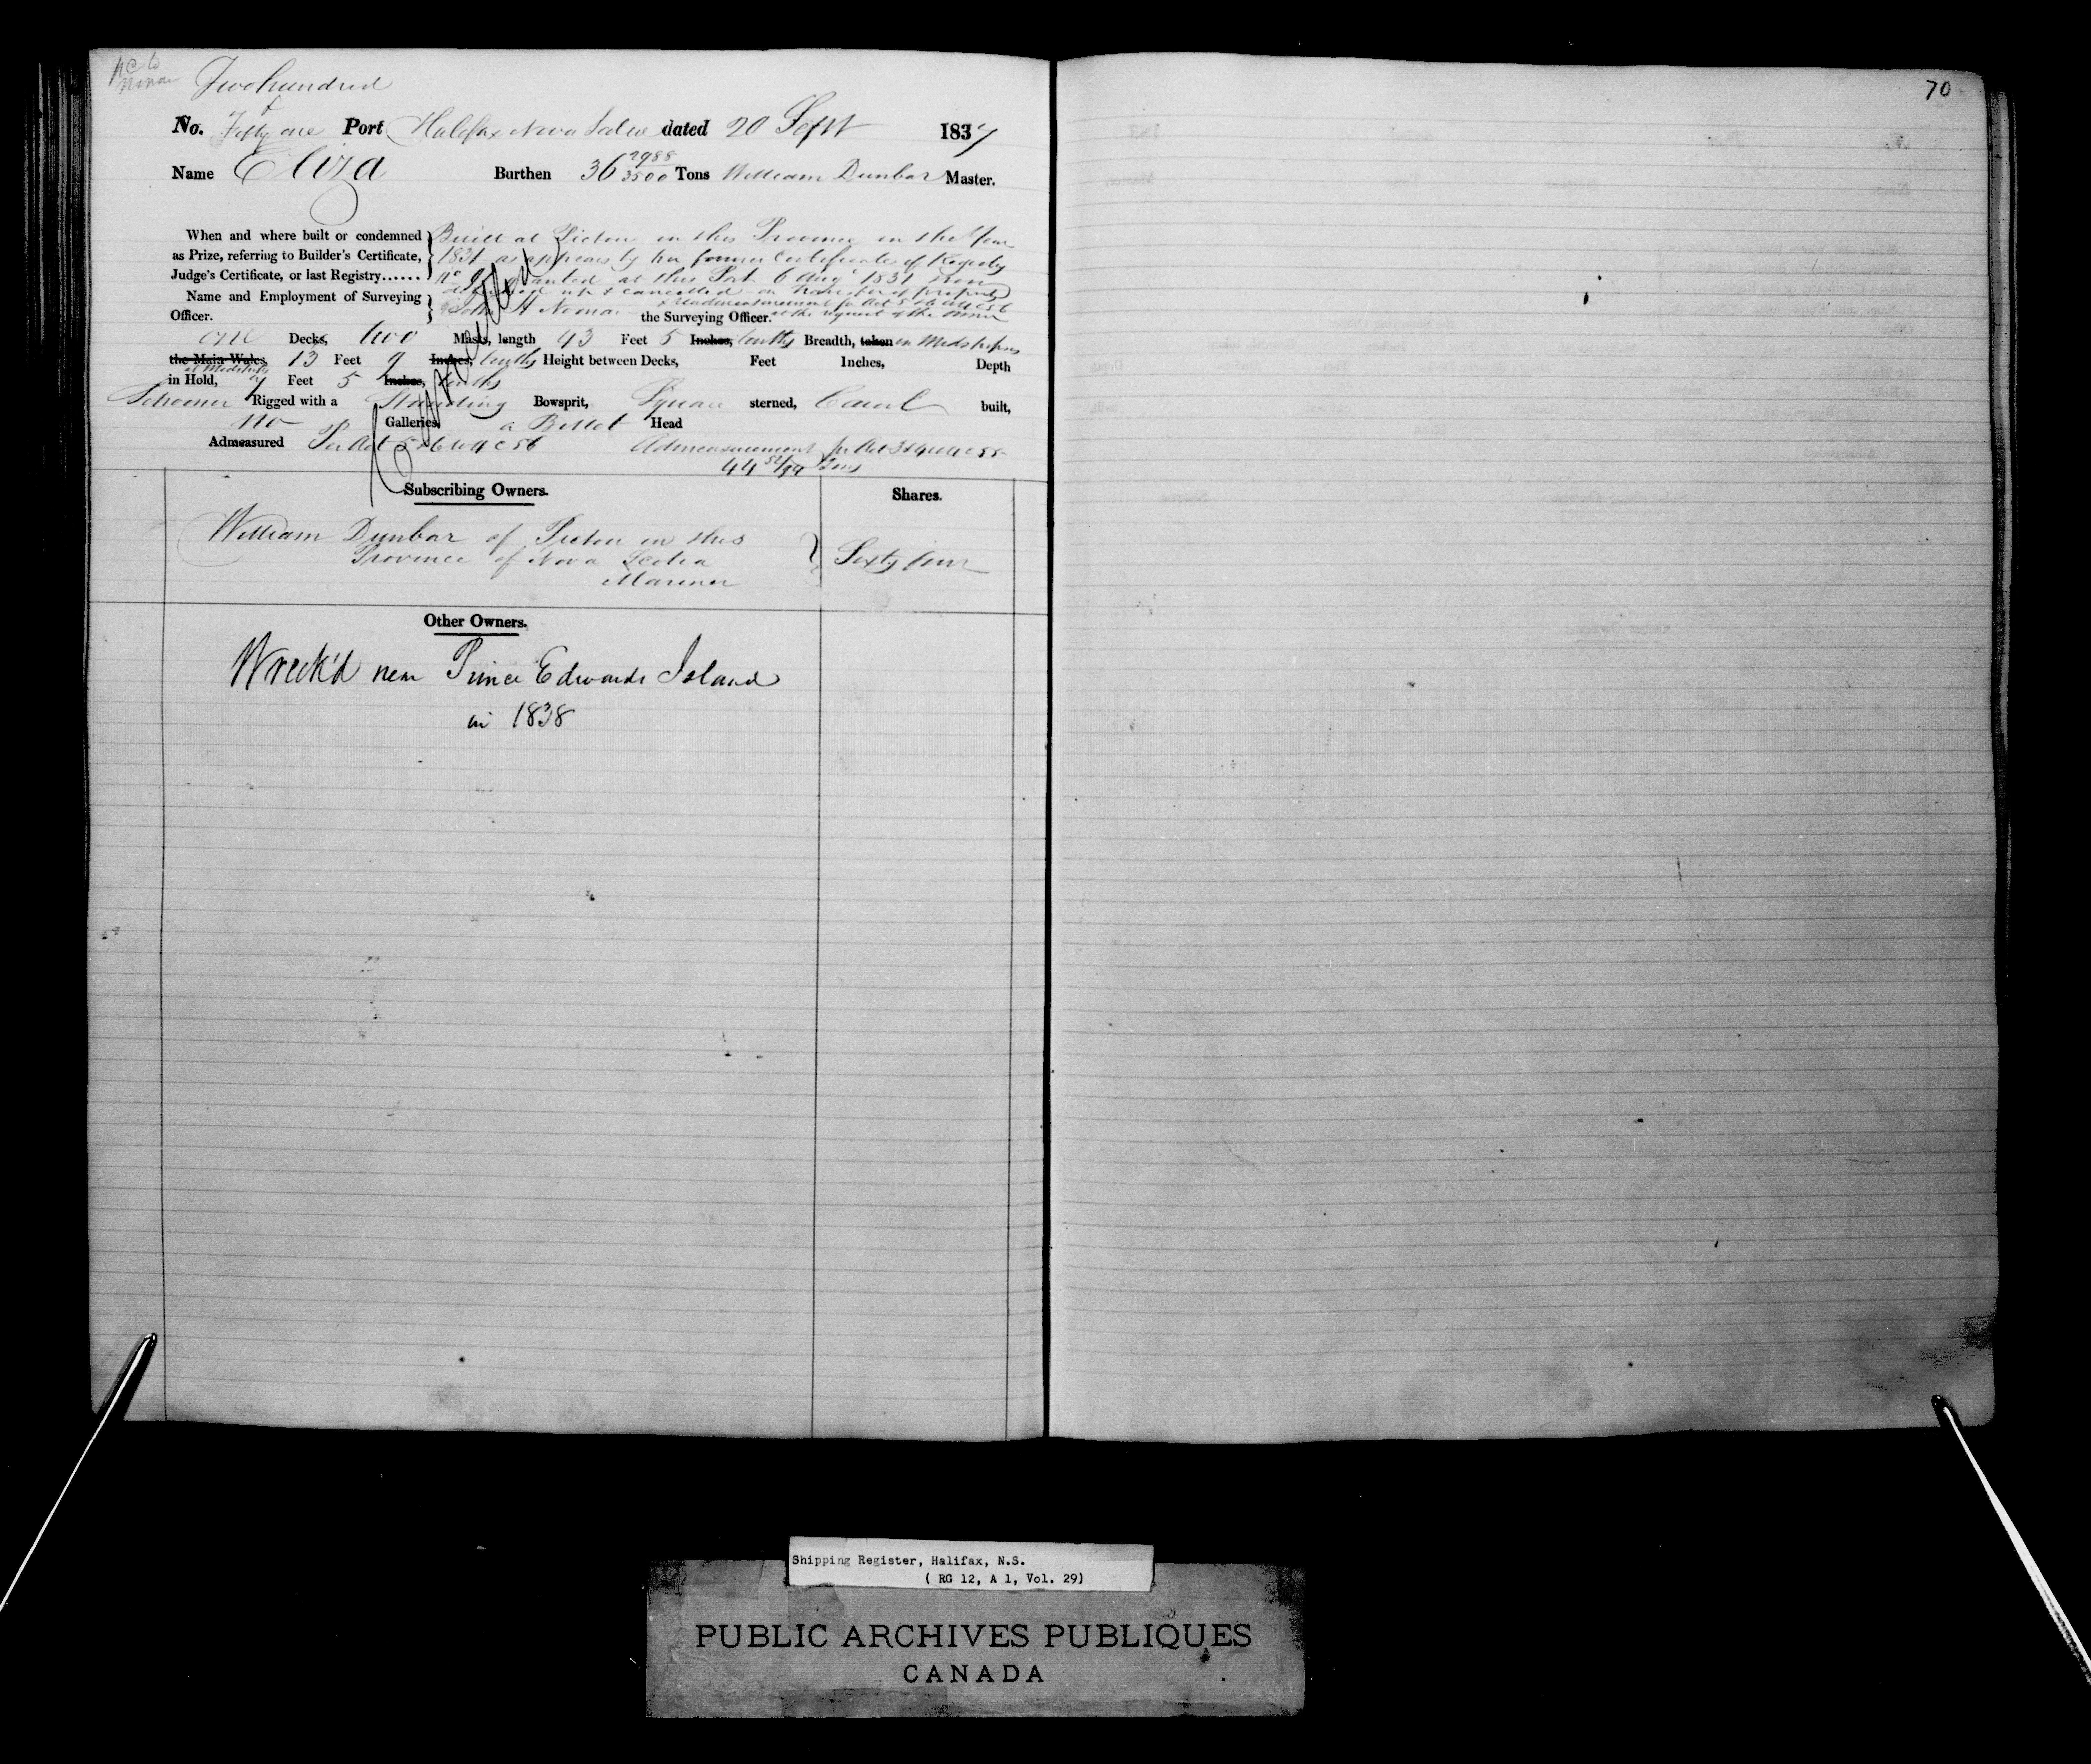 Two hundred
No. Fifty one Port Halifax Nova Scotia dated 20 Sept 1837
Name Eliza Burthen 36 2988/3500 Tons William Dunbar Master.
When and where built or condemned as Prize, referring to Builder's Certificate, Judge's Certificate, or last Registry......
Built at Pictou in this Province in the Year
1831 as appears by her former Certificate of Registry
granted at this Port 6 Augt 1831
delivered up & cancelled
Name and Employment of Surveying Officer.
John H Noonan the Surveying Officer. at the request of the owner
one Decks, two Masts, length 43 Feet 5 Inches, tenths Breadth, taken in Midships
the Main Wales, 13 Feet 9 Inches, tenths Height between Decks, Feet Inches, Depth
at Midships
in Hold, 7 Feet 5 Inches, tenths
Schooner Rigged with a Standing Bowsprit, Square sterned, Carvel built,
no Galleries, a Billet Head
Admeasured Per Act 5 & 6 W 4 C 56 Admeasurement pr Act 3 & 4 W 4 C 55
44 Tons
Subscribing Owners. Shares.
William Dunbar of Pictou in this
Province of Nova Scotia
Mariner
Sixty four
Other Owners.
Wreck'd near Prince Edwards Island
in 1838
70
Shipping Register, Halifax, N.S.
( RG 12, A 1, Vol. 29)
PUBLIC ARCHIVES PUBLIQUES
CANADA